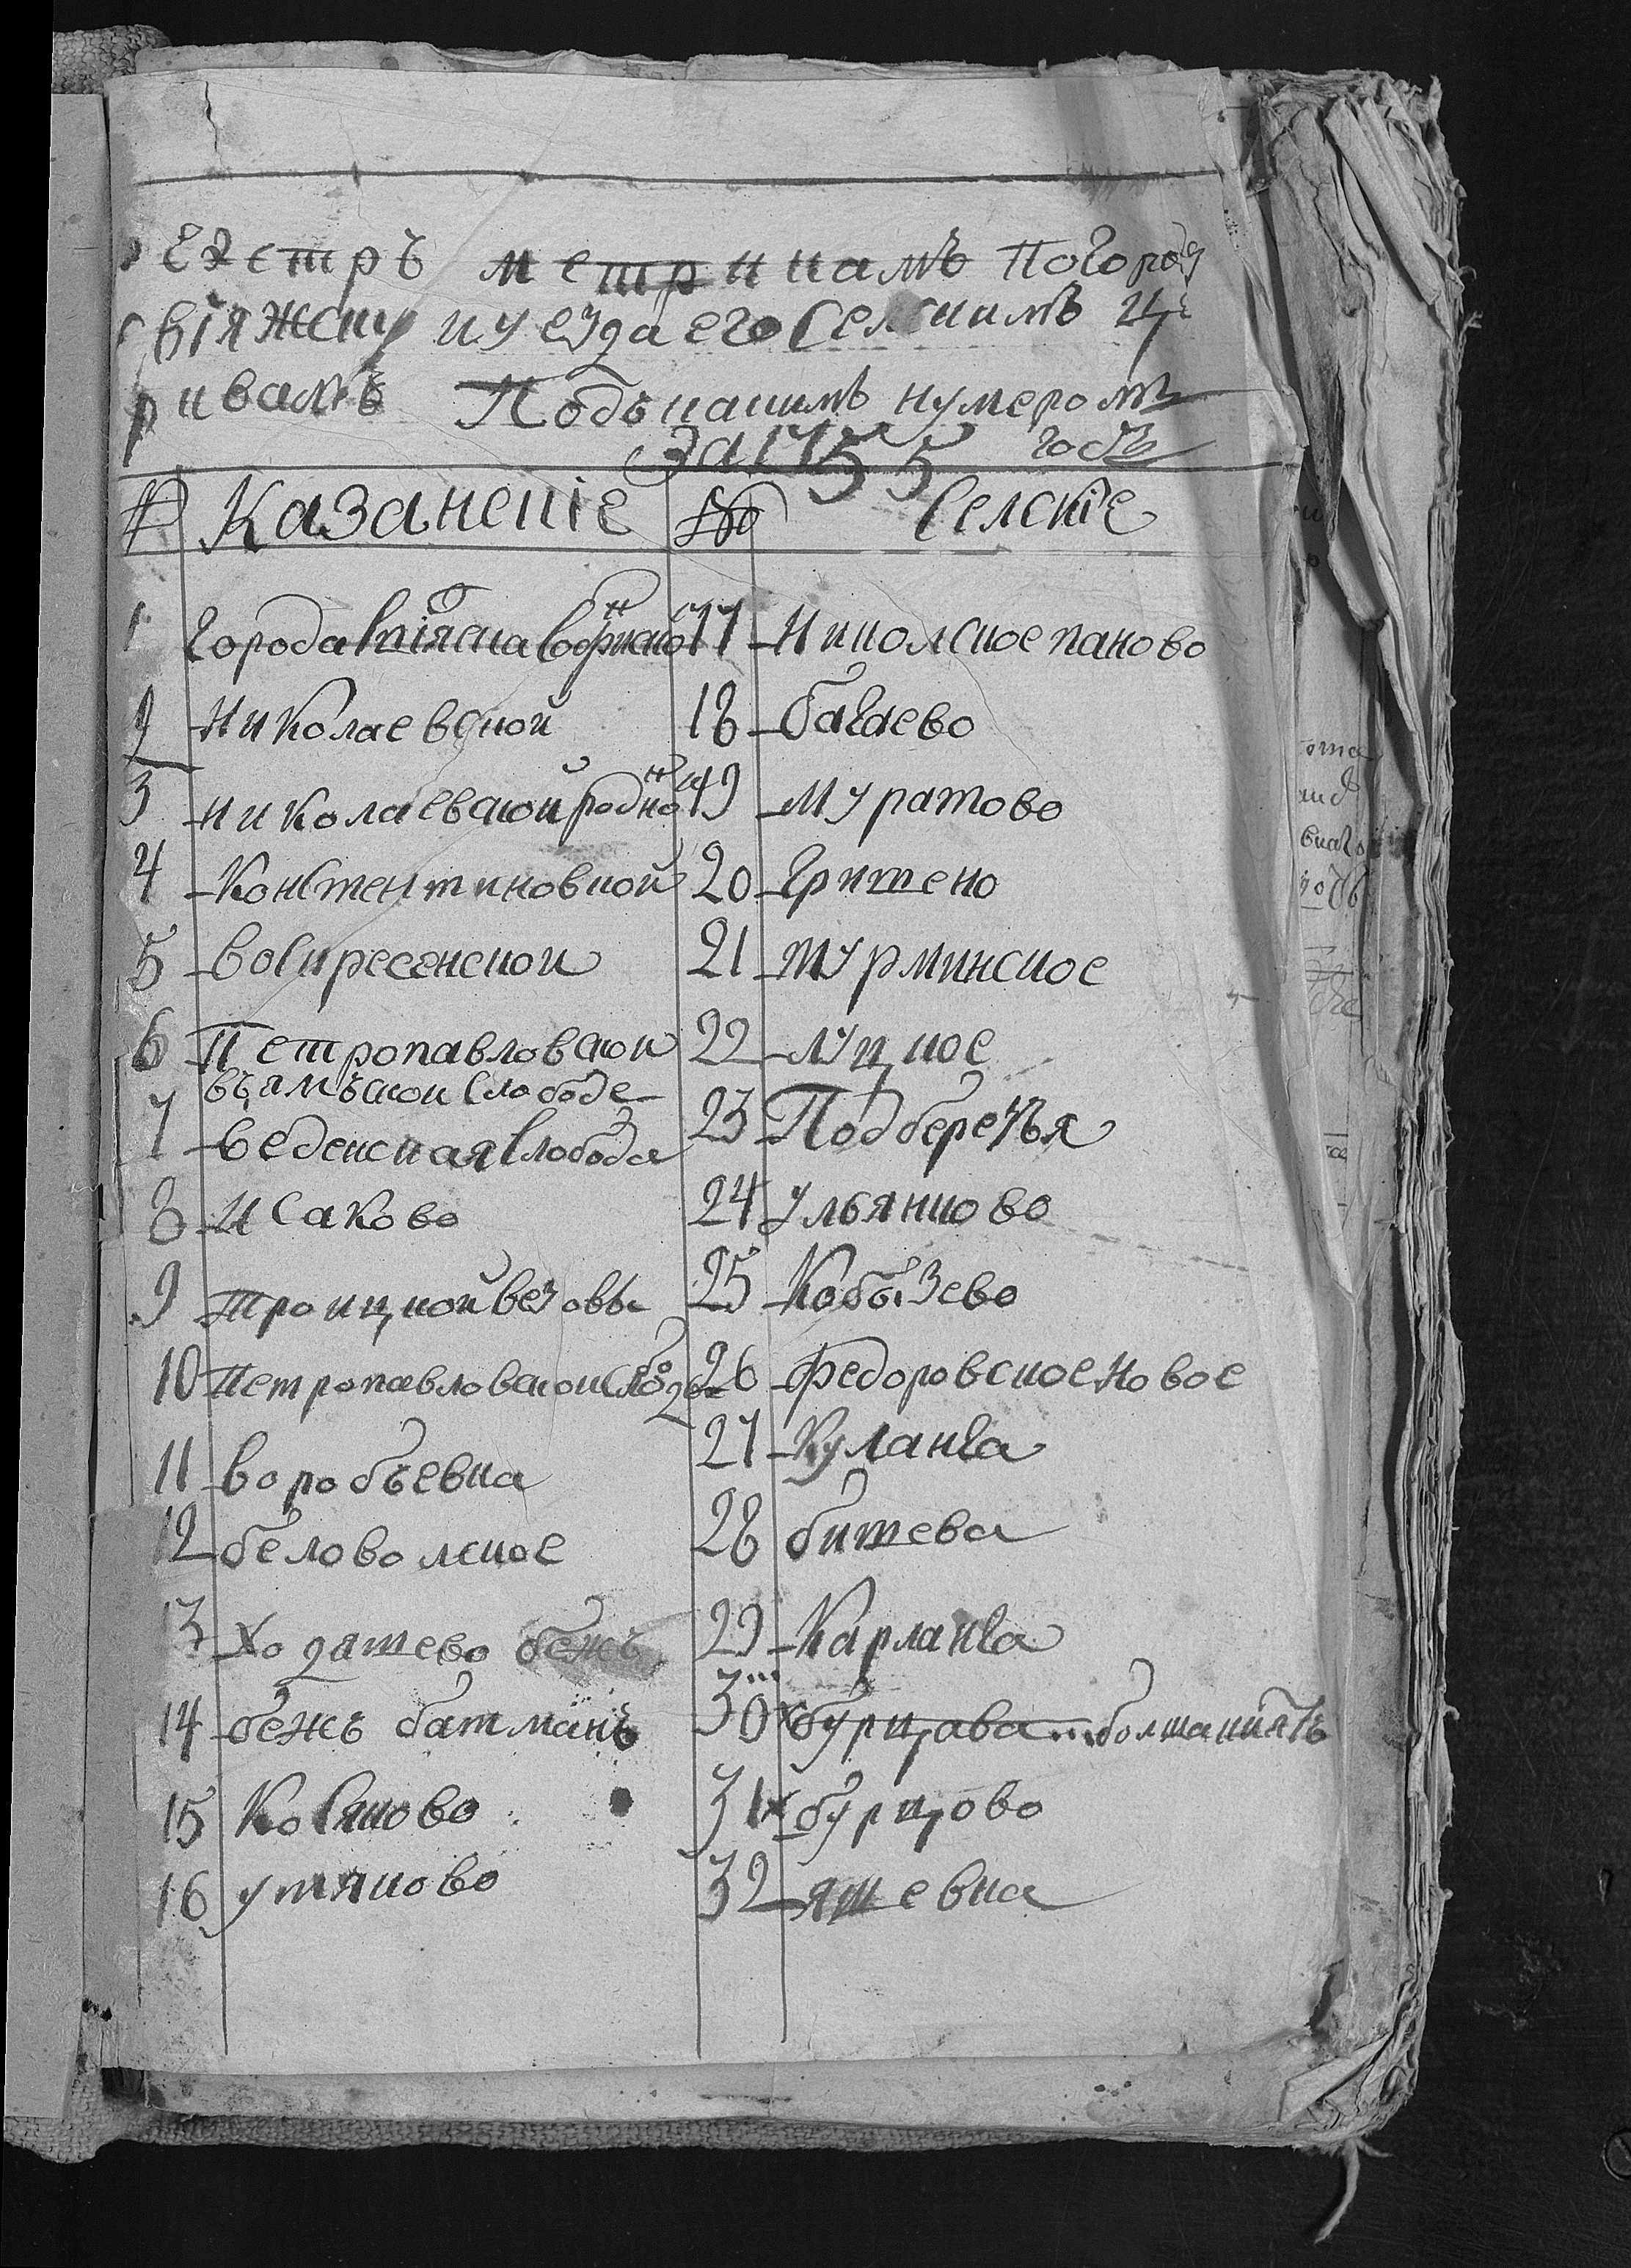 рехстръ метрикамъ погороду
свіяжску и уезда его Селскимъ це
рквамъ Подъ какимъ нумеромъ
За 1755 годъ
№ Казанскіе № Селскіе
1 Города
17 Николское паново
2 Николаевской
18 багаево
3 николаевской родно
19 муратово
4 Констентиновской
20 Гришено
5 воскресенской
21 турминское
6 Петропавловской
въ ямъской Слободе
22 луцкое
7 веденская Слобода
23 Подберезья
8 Исаково
24 ульянково
9 троицкой везовы
25 Кобызево
10 петропавловской слободе
26 федоровское Новое
11 воробъевка
27 Куланга
12 беловолское
28 бишева
13 Ходяшево бежъ
29 Карланга
14 бежъ батманъ
30 бурцава
15 Косяково
31 бурцово
16 утяково
32 яшевка